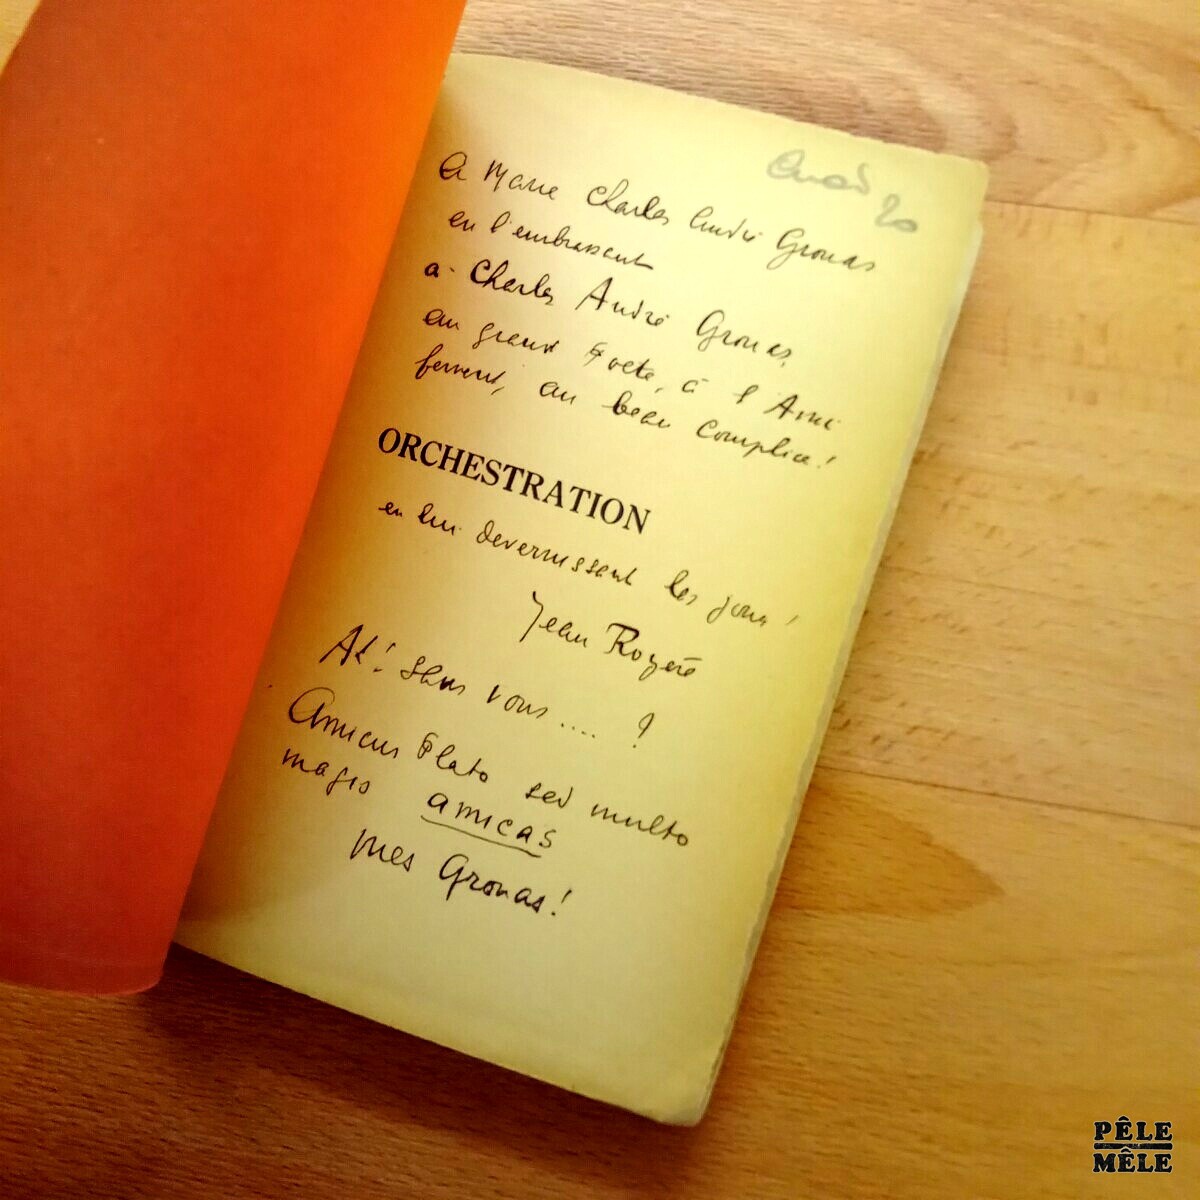 Envoi 20
A Marie Charles André Grouas
en l'embrassant
à Charles André Grouas,
au grand Poète, à l'Ami
fervent, au beau complice!
ORCHESTRATION
en lui devernissant les jours!
Jean Royère
Ah! sans vous .... ?
Amicus Plato sed multo
magis amicas
mes Grouas!
PÊLE
MÊLE